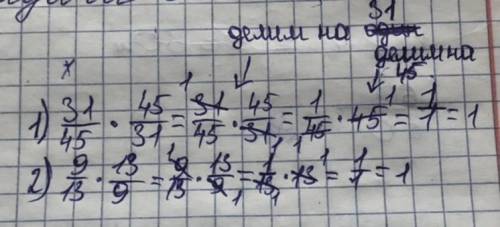 31
делим на один
делим на
45
1) 31/45 · 45/31 = 31/45 · 45/31 = 1/45 · 45 = 1/1 = 1
2) 9/13 · 13/9 = 9/13 · 13/9 = 1/13 · 13 = 1/1 = 1